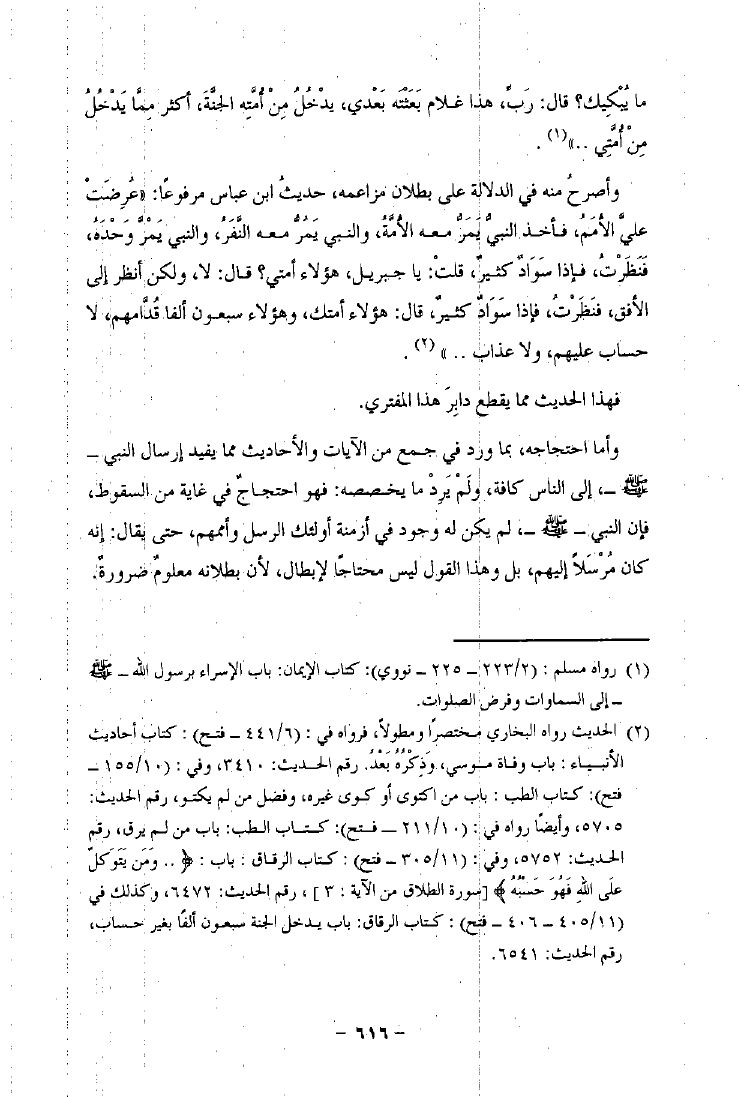 ما يُبْكِيك؟ قال: رَبِّ، هذا غلام بَعَثْتَه بَعْدي، يدْخُلُ مِنْ أُمَّتِه الجنَّةَ، أكثر مِمَّا يَدْخُلُ
مِنْ أُمَّتِي ..»(١) .
وأصرحُ منه في الدلالة على بطلان مزاعمه، حديثُ ابن عباس مرفوعًا: «عُرِضَتْ
عليَّ الأمَمُ، فـأخـذ النبيُّ يَمَرُّ معـه الأُمَّةُ، والنـبي يَمُرُّ معـه النَّفَرُ، والنبي يَمْرُّ وَحْدَهُ،
فَنَظَرْتُ، فـإذا سَوَادٌ كثيرٌ، قلتْ: يا جبريل، هؤلاء أمتي؟ قـال: لا، ولكن أنظر إلى
الأفق، فنَظَرْتُ، فإذا سَوَادٌ كثيرٌ، قال: هؤلاء أمتك، وهؤلاء سبعـون ألفا قُدَّامهم، لا
حساب عليهم، ولا عذاب .. » (٢) .
فهذا الحديث مما يقطع دابِرَ هذا المفتري.
وأما احتجاجه، بما ورد في جـمع من الآيات والأحاديث مما يفيد إرسال النبي ـ
ﷺ ـ، إلى الناس كافة، ولَمْ يَرِدْ ما يخـصصه: فهو احتجـاجٌ في غاية من السقوط،
فإن النبي ـ ﷺ ـ، لم يكن له وجود في أزمنة أولئك الرسل وأممهم، حتى يقال: إنه
كان مُرْسَلاً إليهم، بل وهذا القول ليس محتاجًا لإبطال، لأن بطلانه معلومٌ ضرورةٌ.
(١) رواه مسلم : (٢٢٣/٢ ـ ٢٢٥ ـ نووي): كتاب الإيمان: باب الإسراء برسول الله ـ ﷺ
ـ إلى السماوات وفرض الصلوات.
(٢) الحديث رواه البخاري مـختصرًا ومطولاً، فرواه في : (٤٤١/٦ ـ فتح) : كتاب أحاديث
الأنبـياء : باب وفاة مـوسي، وَذِكْرُهُ بَعْدُ. رقم الحـديث: ٣٤١٠، وفي : (١٥٥/١٠ ـ
فتح): كـتاب الطب : باب من اكتوى أو كوى غيره، وفضل من لم يكتـو، رقم الحديث:
٥٧٠٥، وأيضًا رواه في : (٢١١/١٠ ـ فـتح): كـتـاب الـطب: باب من لـم يرق، رقم
الـحديث: ٥٧٥٢، وفي : (٣٠٥/١١ ـ فتح) : كتاب الرقاق : باب : ﴿ .. وَمَن يَتَوَكَلّ
عَلَى اللَّهِ فَهُوَ حَسْبُهُ ﴾ [سورة الطلاق من الآية : ٣ ] ، رقم الحديث: ٦٤٧٢، وكذلك في
(٤٠٥/١١ ـ ٤٠٦ ـ فتح) : كُتاب الرقاق: باب يـدخل الجنة سبعـون ألفًا بغير حسـاب،
رقم الحديث: ٦٥٤١.
- ٦١٦ -